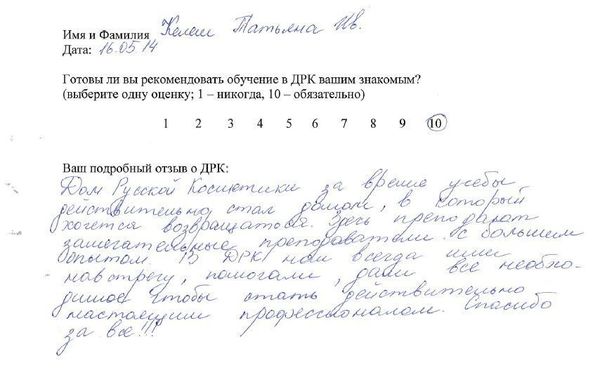 Имя и Фамилия Келеш Татьяна Ив.
Дата: 16.05 14
Готовы ли вы рекомендовать обучение в ДРК вашим знакомым?
(выберите одну оценку; 1 – никогда, 10 – обязательно)
1 2 3 4 5 6 7 8 9 10
Ваш подробный отзыв о ДРК:
Дом Русской Косметики за время учебы
действительно стал домом, в который
хочется возвращаться. Здесь преподают
замечательные преподаватели с большим
опытом. В ДРК нам всегда шли
навстречу, помогали, дали все необхо-
димое чтобы стать действительно
настоящим профессионалом. Спасибо
за все!!!